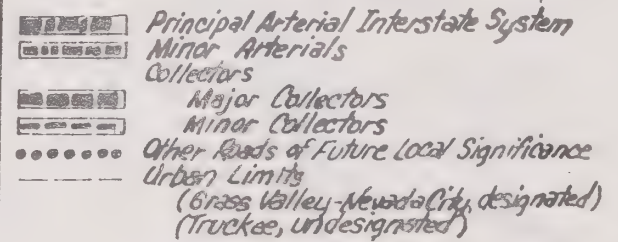 Principal Arterial Interstate System
Minor Arterials
Collectors
Major Collectors
Minor Collectors
Other Roads of Future Local Significance
Urban Limits
(Grass Valley-Nevada City, designated)
(Truckee, undesignated)